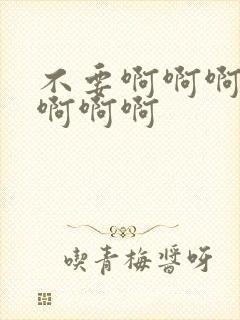 不要啊啊啊
啊啊啊
喫青梅醬呀